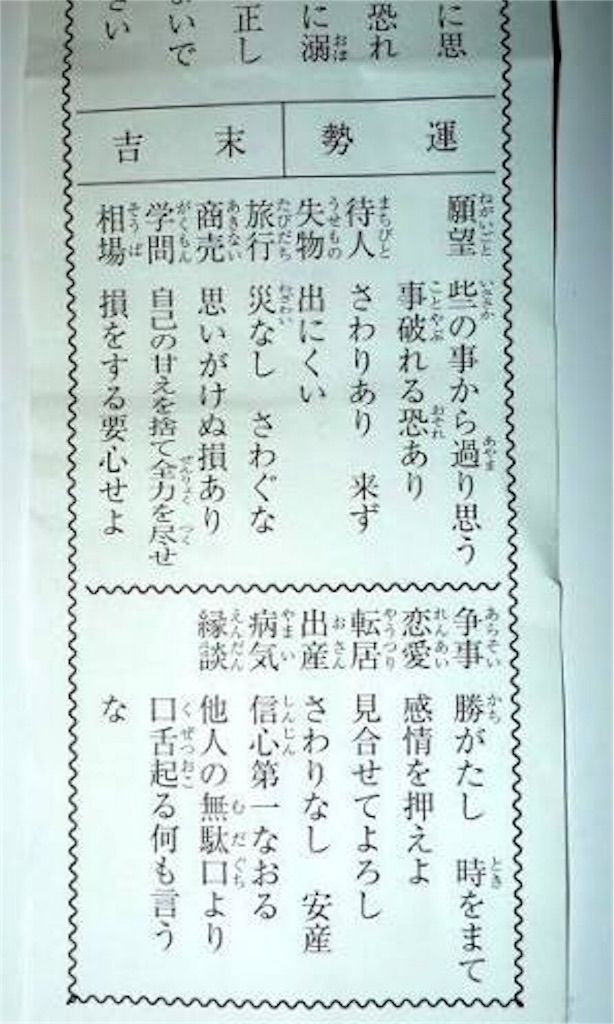 に思
恐れ
に溺
正し
いで
さい
運勢
末吉
願望 些の事から過り思う
事破れる恐あり
待人 さわりあり 来ず
失物 出にくい
旅行 災なし さわぐな
商売 思いがけぬ損あり
学問 自己の甘えを捨て全力を尽せ
相場 損をする要心せよ
争事 勝がたし 時をまて
恋愛 感情を押えよ
転居 見合せてよろし
出産 さわりなし 安産
病気 信心第一なおる
縁談 他人の無駄口より
口舌起る何も言う
な